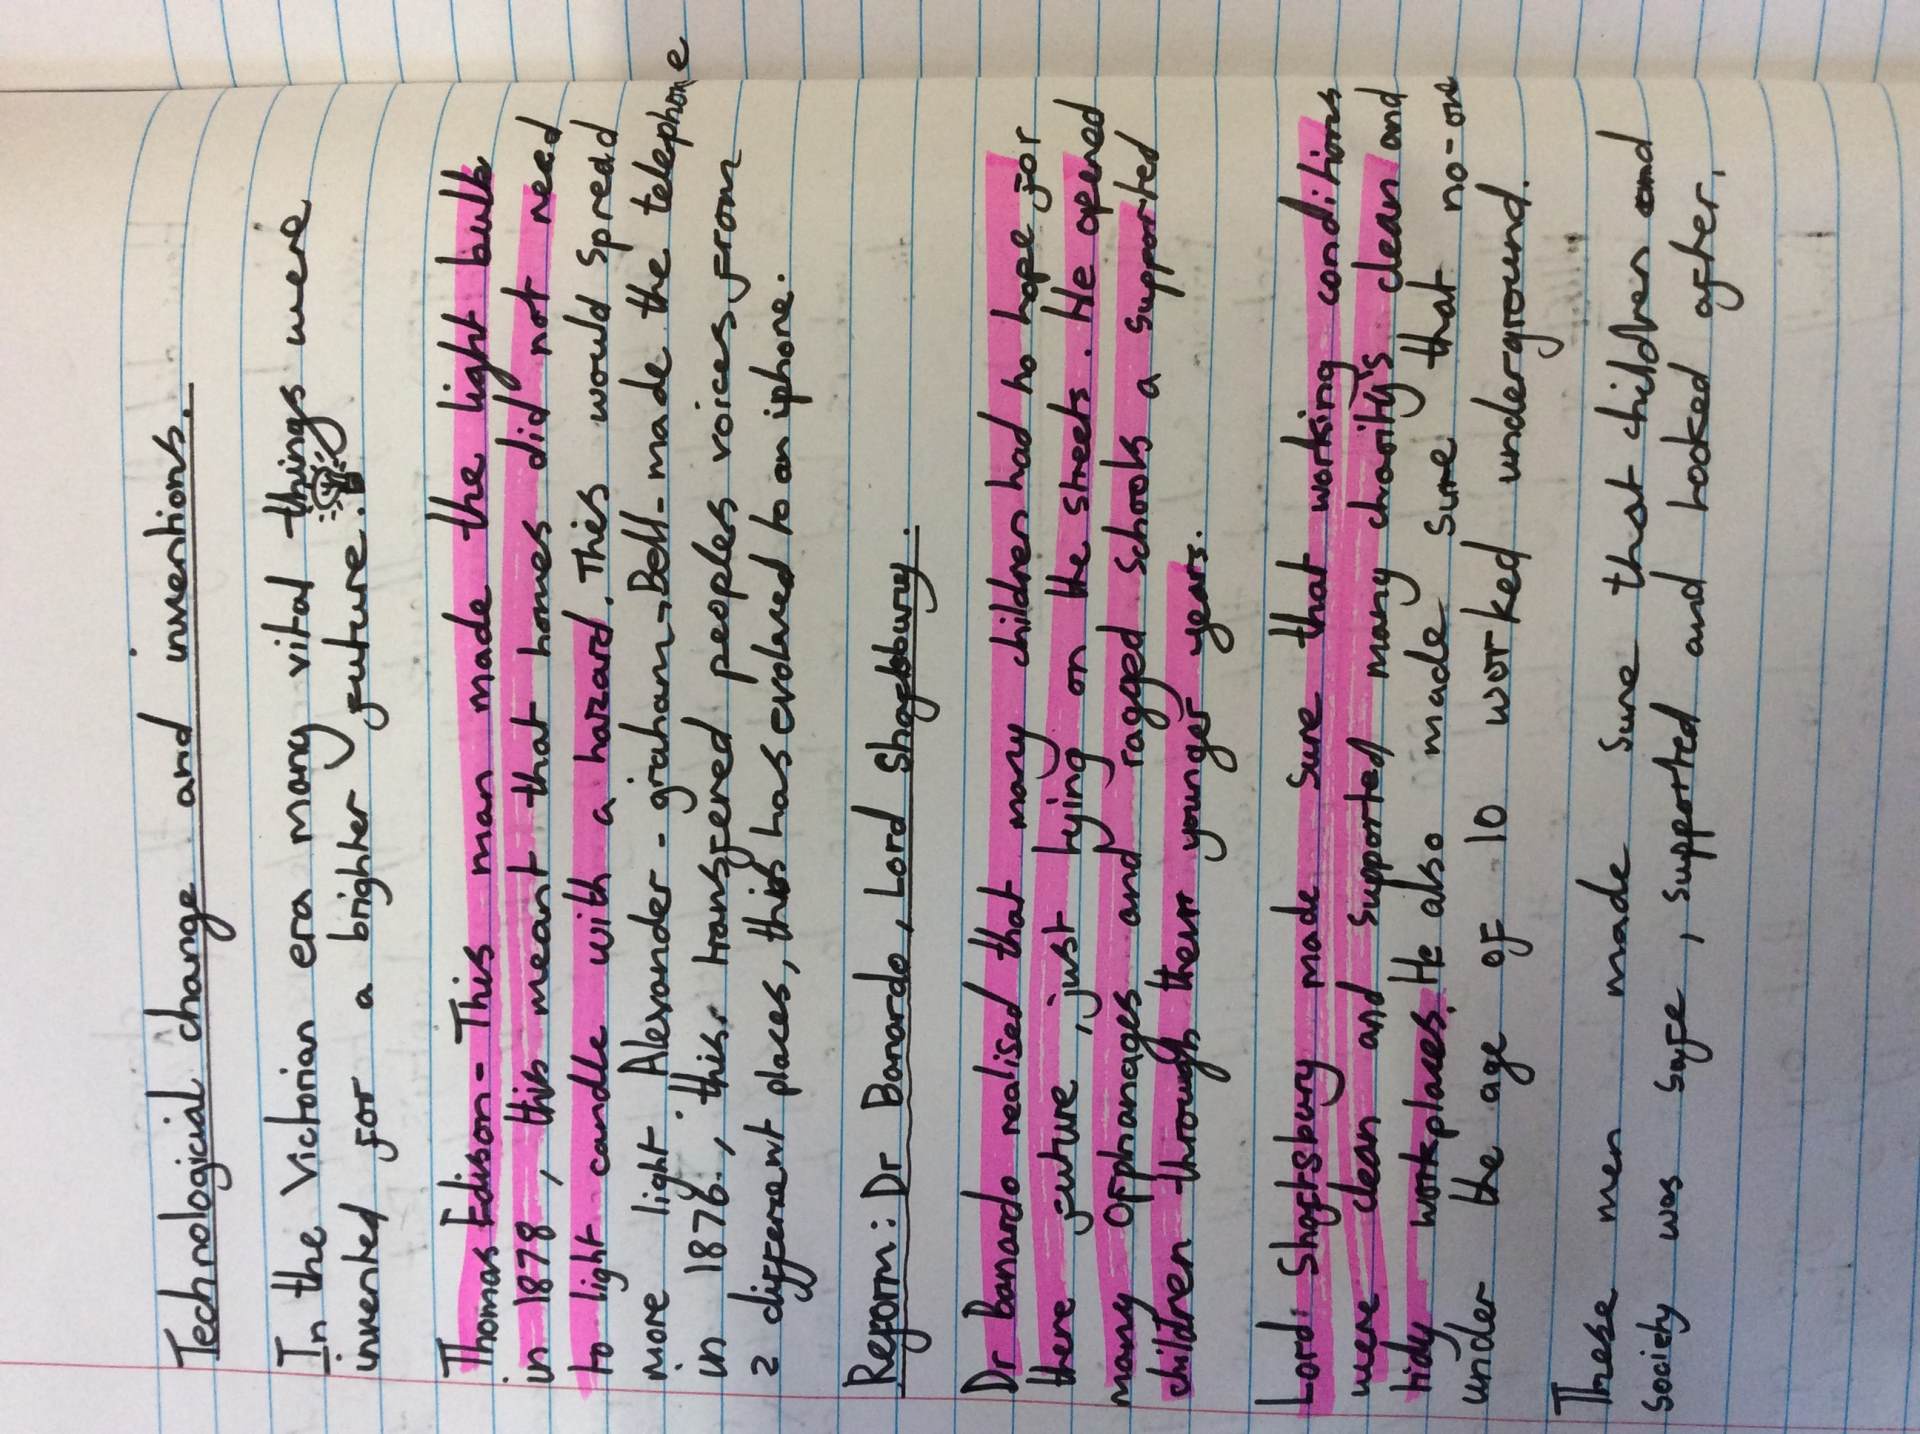 Technologicial change and inventions.
In the Victorian era many vital things were
invented for a brighter future.
Thomas Edison - This man made the light bulb
in 1878, this meant that homes did not need
to light candle with a hazard. This would spread
more light. Alexander-graham-Bell-made the telephone
in 1876, this transfered peoples voices from
2 different places, this has evolved to an iphone.
Reform: Dr Banardo, Lord Shaftbbury.
Dr Banardo realised that many children had no hope for
there future, just trying on the streets. He opened
many orphanages and ragged schools a supported
children through them younger years.
Lord Shaftsbury made sure that working conditions
were clean and supported many charity's clean and
tidy workplaces. He also made sure that no-one
under the age of 10 worked underground.
These men made sure that children and
society was safe, supported and looked after.